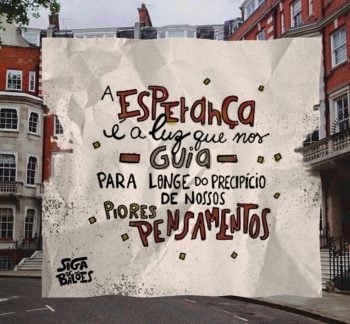 A ESPERANÇA
é a luz que nos
GUIA
PARA LONGE DO PRECIPÍCIO
DE NOSSOS
PIORES PENSAMENTOS
SIGA
OS
BALÕES